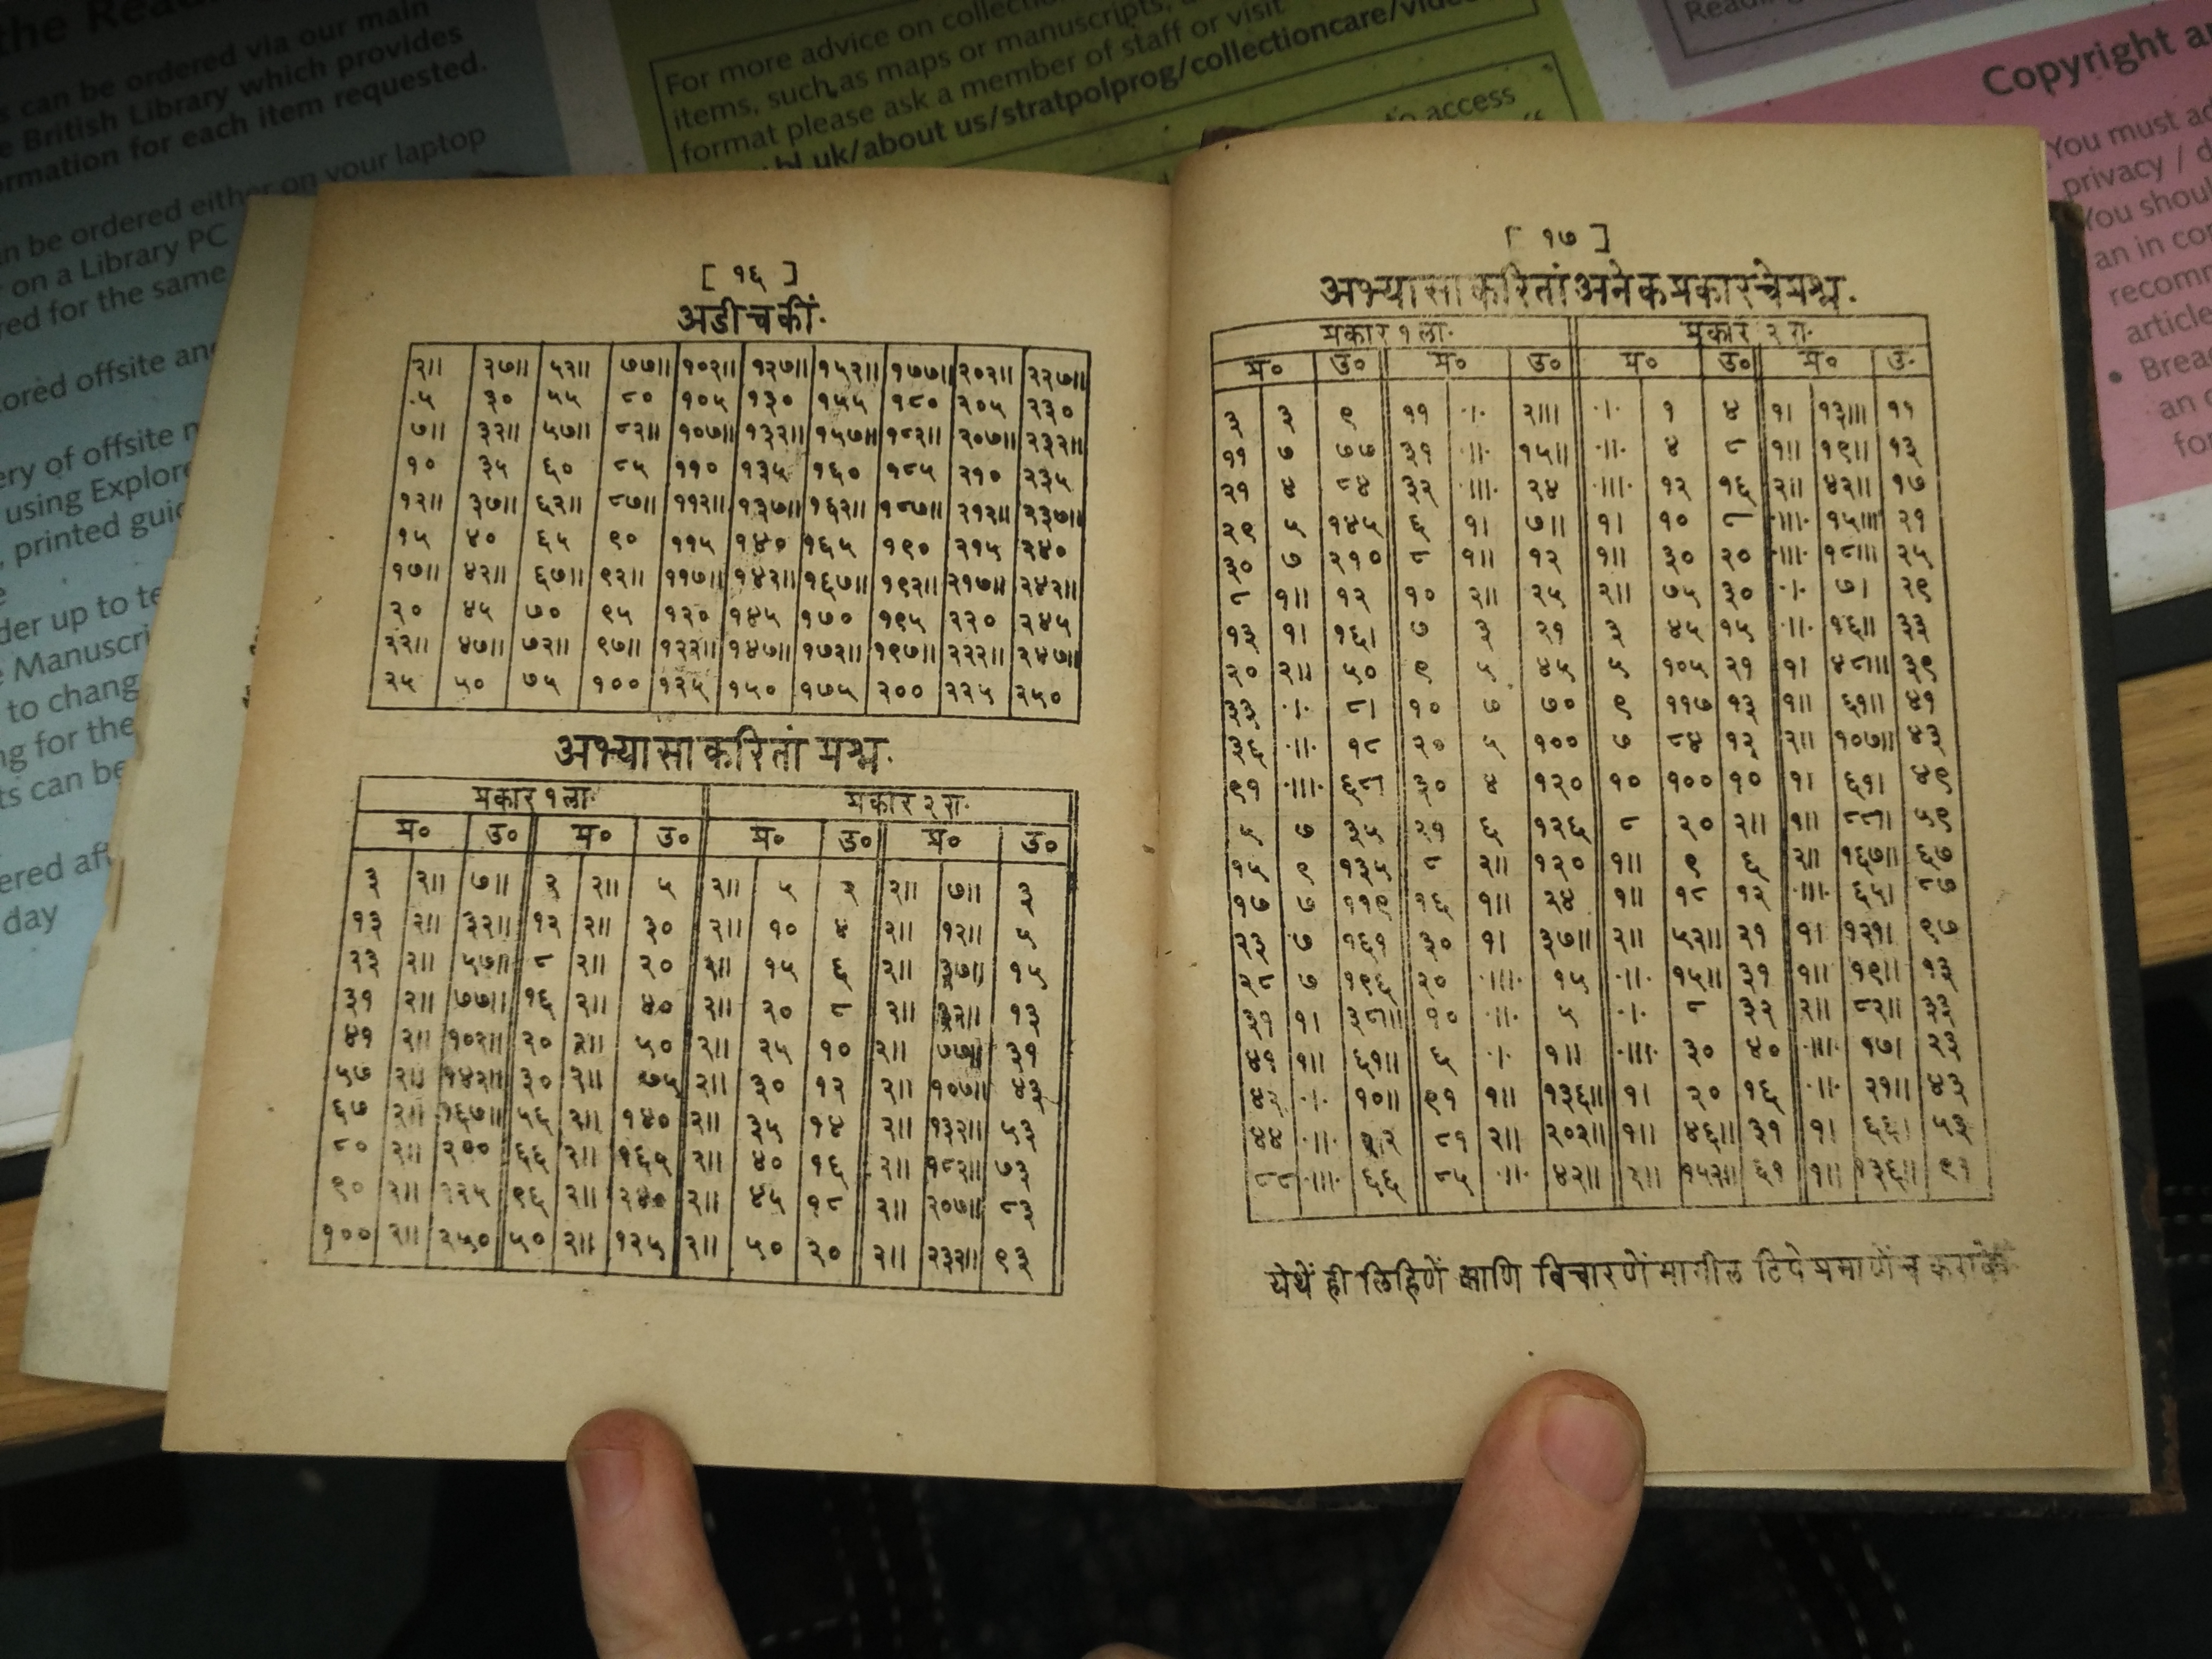 the Read
s can be ordered via our main
e British Library which provides
ormation for each item requested.
n be ordered either on your laptop
on a Library PC
red for the same
ored offsite and
ery of offsite
using Explore
printed guid
der up to
e Manuscri
to change
ng for the
ts can be
ered aft
day
For more advice on collection
items, such as maps or manuscripts,
format please ask a member of staff or visit
bl.uk/about us/stratpolprog/collectioncare/video
to access
Reading
Copyright
You must
privacy /
You shou
an in
recomm
article
• Brea
an
for
[ १६ ]
अडीचकीं.
२॥ २७॥ ५२॥ ७७॥ १०२॥ १२७॥ १५२॥ १७७॥ २०२॥ २२७॥
५ ३० ५५ ८० १०५ १३० १५५ १८० २०५ २३०
७॥ ३२॥ ५७॥ ८२॥ १०७॥ १३२॥ १५७॥ १८२॥ २०७॥ २३२॥
१० ३५ ६० ८५ ११० १३५ १६० १८५ २१० २३५
१२॥ ३७॥ ६२॥ ८७॥ ११२॥ १३७॥ १६२॥ १८७॥ २१२॥ २३७॥
१५ ४० ६५ ९० ११५ १४० १६५ १९० २१५ २४०
१७॥ ४२॥ ६७॥ ९२॥ ११७॥ १४२॥ १६७॥ १९२॥ २१७॥ २४२॥
२० ४५ ७० ९५ १२० १४५ १७० १९५ २२० २४५
२२॥ ४७॥ ७२॥ ९७॥ १२२॥ १४७॥ १७२॥ १९७॥ २२२॥ २४७॥
२५ ५० ७५ १०० १२५ १५० १७५ २०० २२५ २५०
अभ्यासाकरितां प्रश्न.
प्रकार १ला. प्रकार २रा.
प्र० उ० प्र० उ० प्र० उ० प्र० उ०
३ २॥ ७॥ २ २॥ ५ २॥ ५ २ २॥ ७॥ ३
१३ २॥ ३२॥ १२ २॥ ३० २॥ १० ४ २॥ १२॥ ५
२३ २॥ ५७॥ ८ २॥ २० २॥ १५ ६ २॥ ३७॥ १५
३१ २॥ ७७॥ १६ २॥ ४० २॥ २० ८ २॥ ३२॥ १३
४१ २॥ १०२॥ २० २॥ ५० २॥ २५ १० २॥ ७७॥ ३१
५७ २॥ १४२॥ ३० २॥ ७५ २॥ ३० १२ २॥ १०७॥ ४३
६७ २॥ १६७॥ ५६ २॥ १४० २॥ ३५ १४ २॥ १३२॥ ५३
८० २॥ २०० ६६ २॥ १६५ २॥ ४० १६ २॥ १८२॥ ७३
९० २॥ २२५ ९६ २॥ २४० २॥ ४५ १८ २॥ २०७॥ ८३
१०० २॥ २५० ५० २॥ १२५ २॥ ५० २० २॥ २३२॥ ९३
[ १७ ]
अभ्यासाकरितां अनेक प्रकारचे प्रश्न.
प्रकार १ला. प्रकार २रा.
प्र० उ० प्र० उ० प्र० उ० प्र० उ.
३ ३ ९ ११ ·।· २॥। ·।· १ ४ १। १३॥। ११
११ ७ ७७ ३१ ·॥· १५॥ ·॥· ४ ८ १॥ १९॥ १३
२१ ४ ८४ ३२ ·॥।· २४ ·॥।· १२ १६ २॥ ४२॥ १७
२९ ५ १४५ ६ १। ७॥ १। १० ८ ·॥।· १५॥। २१
३० ७ २१० ८ १॥ १२ १॥ ३० २० ·॥।· १८॥। २५
८ १॥ १२ १० २॥ २५ २॥ ७५ ३० ·।· ७। २९
१३ १। १६। ७ ३ २१ ३ ४५ १५ ·॥· १६॥ ३३
२० २॥ ५० ९ ५ ४५ ५ १०५ २१ १। ४८॥। ३९
३३ ·।· ८। १० ७ ७० ९ ११७ १३ १॥ ६१॥ ४१
३६ ·॥· १८ २० ५ १०० ७ ८४ १२ २॥ १०७॥ ४३
९१ ·॥।· ६८। ३० ४ १२० १० १०० १० १। ६१। ४९
५ ७ ३५ २१ ६ १२६ ८ २० २॥ १॥ ८८॥ ५९
१५ ९ १३५ ८ २॥ १२० १॥ ९ ६ २॥ १६७॥ ६७
१७ ७ ११९ १६ १॥ २४ १॥ १८ १२ ·॥।· ६५। ८७
२३ ७ १६१ ३० १। ३७॥ २॥ ५२॥ २१ १। १२१। ९७
२८ ७ १९६ २० ·॥।· १५ ·॥· १५॥ ३१ १॥ १९॥ १३
३१ १। ३८॥। १० ·॥· ५ ·।· ८ ३२ २॥ ८२॥ ३३
४१ १॥ ६१॥ ६ ·।· १॥ ·॥।· ३० ४० ·॥।· १७। २३
४२ ·।· १०॥ ९१ १॥ १३६॥ १। २० १६ ·॥· २१॥ ४३
४४ ·॥· २२ ८१ २॥ २०२॥ १॥ ४६॥ ३१ १। ६६। ५३
८८ ·॥।· ६६ ८५ ·॥· ४२॥ २॥ १५२॥ ६१ १॥ १३६॥ ९१
येथें ही लिहिणें आणि विचारणें मागील टिपे प्रमाणेंच करावें